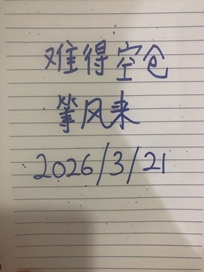 难得空仓
等风来
2026/3/21